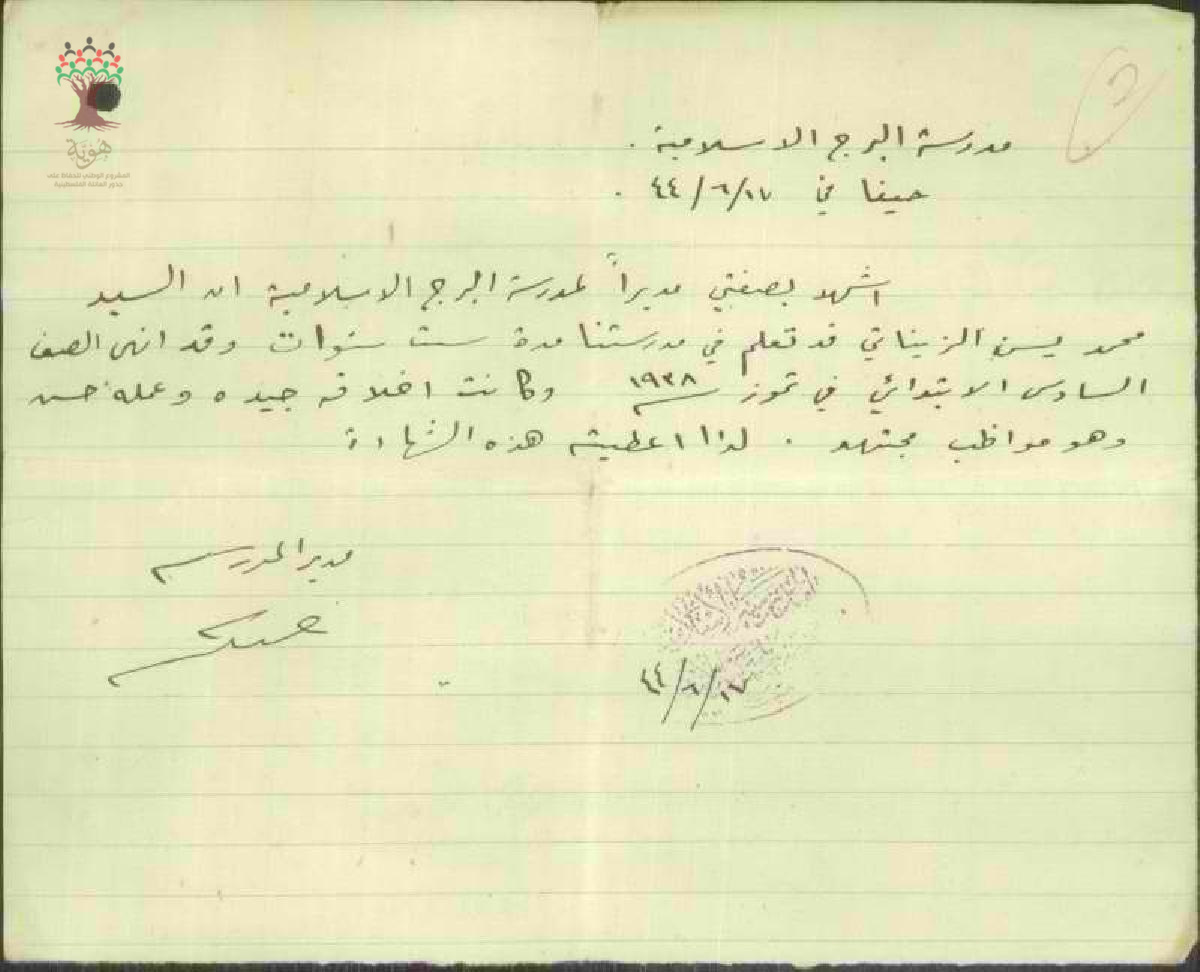 هوية
المشروع الوطني للحفاظ على
جذور العائلة الفلسطينية
مدرسة البرج الاسلامية .
حيفا في ١٧/٦/٤٤ .
اشهد بصفتي مديراً لمدرسة البرج الاسلامية ان السيد
محمد يسن الزيناتي قد تعلم في مدرستنا مدة ست سنوات وقد انهى الصف
السادس الابتدائي في تموز سنة ١٩٣٨ وكانت اخلاقه جيده وعمله حسن
وهو مواظب مجتهد . لذا اعطيته هذه الشهادة
مدير المدرسة
١٧/٦/٤٤